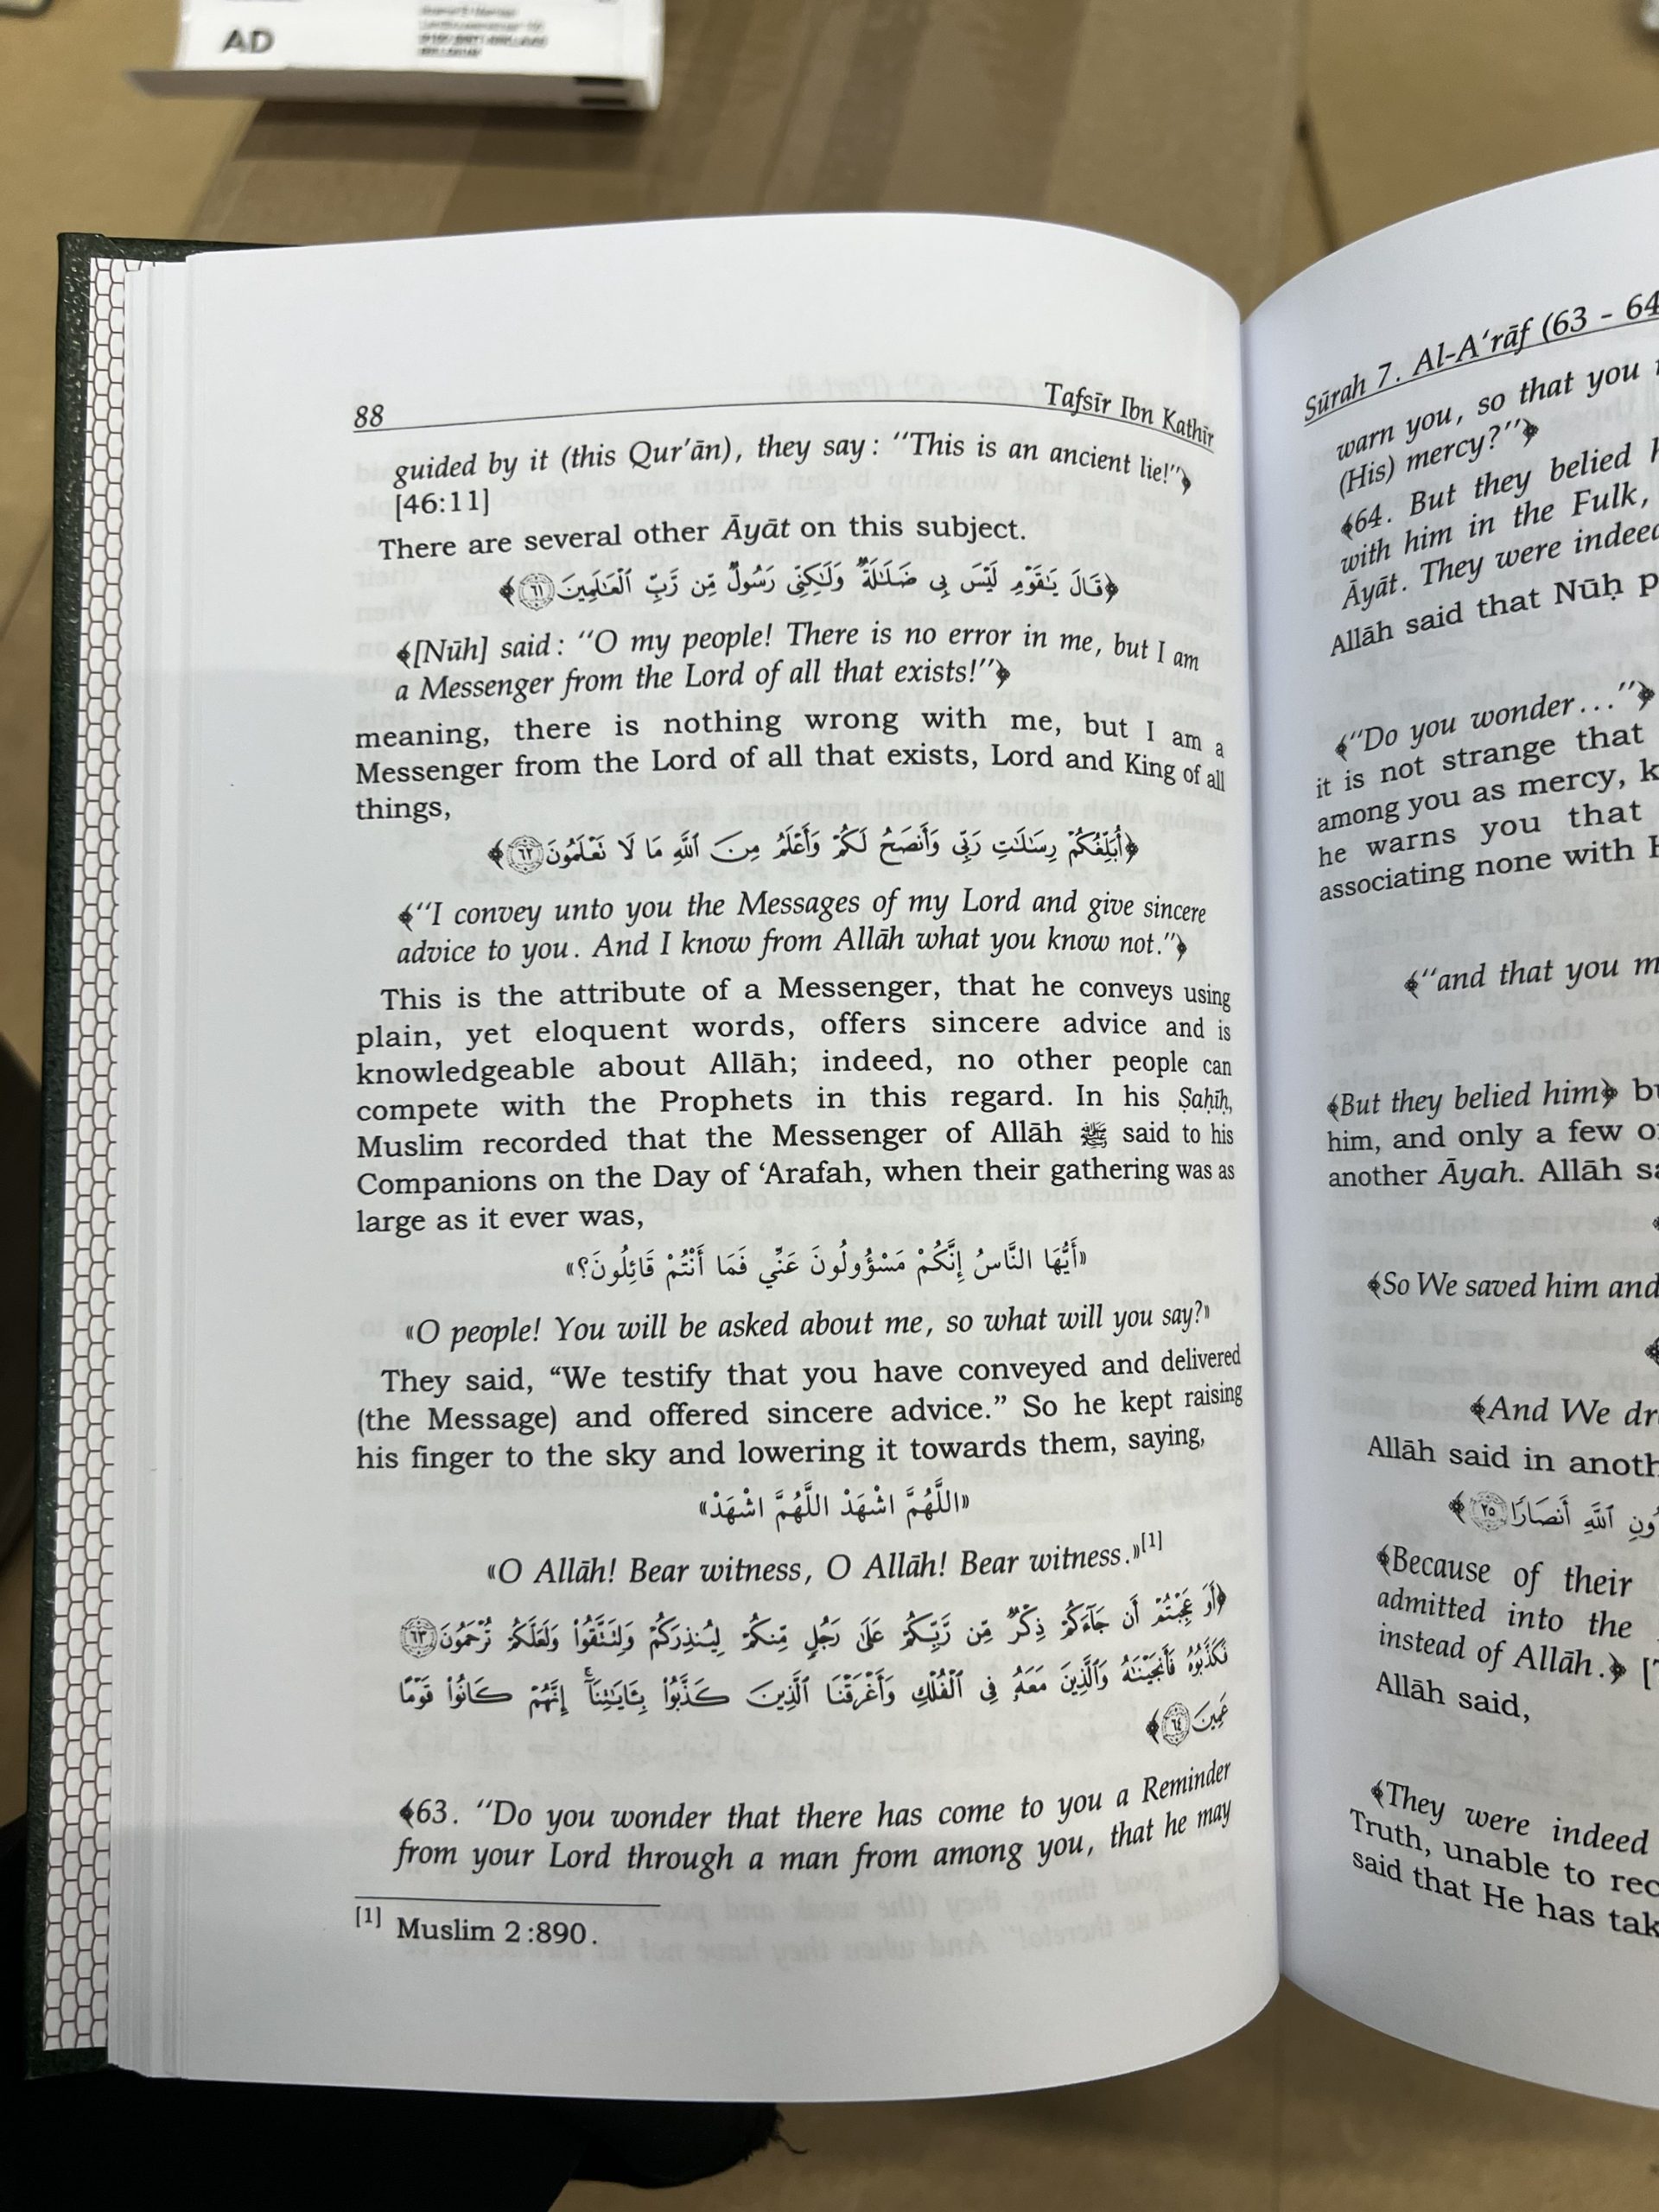 AD
88
Tafsīr Ibn Kathīr
guided by it (this Qur'ān), they say: "This is an ancient lie!"﴿
[46:11]
There are several other Āyāt on this subject.
﴿قَالَ يَـٰقَوْمِ لَيْسَ بِى ضَلَـٰلَةٌ وَلَـٰكِنِّى رَسُولٌ مِّن رَّبِّ ٱلْعَـٰلَمِينَ ٦١﴾
﴾[Nūh] said: "O my people! There is no error in me, but I am
a Messenger from the Lord of all that exists!"﴿
meaning, there is nothing wrong with me, but I am a
Messenger from the Lord of all that exists, Lord and King of all
things,
﴿أُبَلِّغُكُمْ رِسَـٰلَـٰتِ رَبِّى وَأَنصَحُ لَكُمْ وَأَعْلَمُ مِنَ ٱللَّهِ مَا لَا تَعْلَمُونَ ٦٢﴾
﴾"I convey unto you the Messages of my Lord and give sincere
advice to you. And I know from Allāh what you know not."﴿
This is the attribute of a Messenger, that he conveys using
plain, yet eloquent words, offers sincere advice and is
knowledgeable about Allāh; indeed, no other people can
compete with the Prophets in this regard. In his Ṣaḥīḥ,
Muslim recorded that the Messenger of Allāh ﷺ said to his
Companions on the Day of ‘Arafah, when their gathering was as
large as it ever was,
«أَيُّهَا النَّاسُ إِنَّكُمْ مَسْؤُولُونَ عَنِّي فَمَا أَنْتُمْ قَائِلُونَ؟»
«O people! You will be asked about me, so what will you say?»
They said, “We testify that you have conveyed and delivered
(the Message) and offered sincere advice.” So he kept raising
his finger to the sky and lowering it towards them, saying,
«اللَّهُمَّ اشْهَدْ اللَّهُمَّ اشْهَدْ»
«O Allāh! Bear witness, O Allāh! Bear witness.»[1]
﴿أَوَ عَجِبْتُمْ أَن جَآءَكُمْ ذِكْرٌ مِّن رَّبِّكُمْ عَلَىٰ رَجُلٍ مِّنكُمْ لِيُنذِرَكُمْ وَلِتَتَّقُوا۟ وَلَعَلَّكُمْ تُرْحَمُونَ ٦٣
فَكَذَّبُوهُ فَأَنجَيْنَـٰهُ وَٱلَّذِينَ مَعَهُۥ فِى ٱلْفُلْكِ وَأَغْرَقْنَا ٱلَّذِينَ كَذَّبُوا۟ بِـَٔايَـٰتِنَآ إِنَّهُمْ كَانُوا۟ قَوْمًا
عَمِينَ ٦٤﴾
﴾63. "Do you wonder that there has come to you a Reminder
from your Lord through a man from among you, that he may
[1] Muslim 2:890.
Sūrah 7. Al-A‘rāf (63 - 64
warn you, so that you
(His) mercy?"﴿
﴾64. But they belied
with him in the Fulk,
Āyāt. They were indeed
Allāh said that Nūḥ
﴾"Do you wonder..."﴿
it is not strange that
among you as mercy,
he warns you that
associating none with
﴾"and that you
﴾But they belied him﴿
him, and only a few
another Āyah. Allāh
﴾So We saved him and
﴾And We
Allāh said in
ٱللَّهِ أَنصَارًا ٢٥﴾
﴾Because of their
admitted into the
instead of Allāh.﴿
Allāh said,
﴾They were indeed
Truth, unable to
said that He has